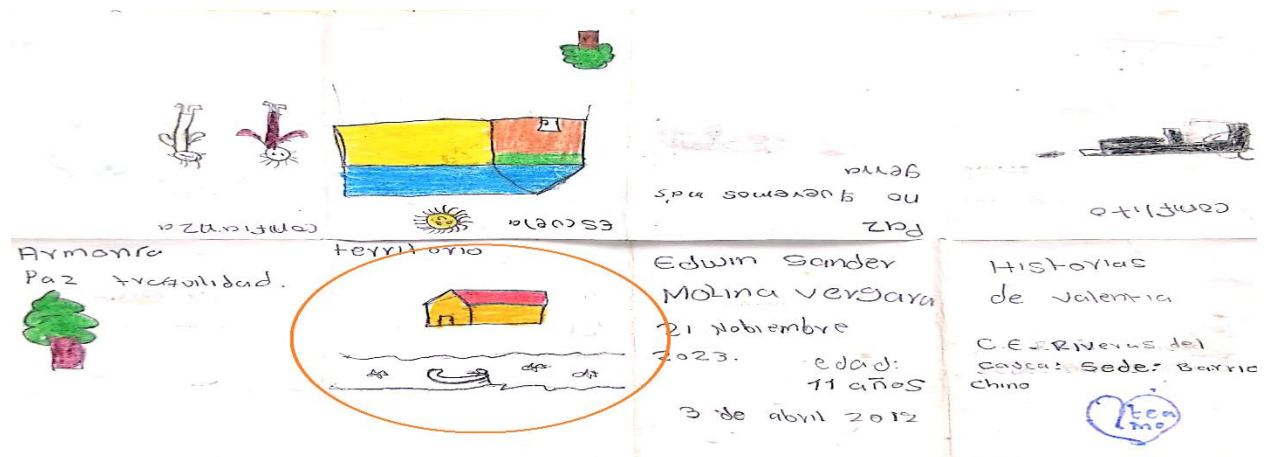 comfianza
Escuela
Paz
no queremos más
gerra
comflito
Armonia
Paz traquilidad.
territorio
Edwin Sander
Molina Vergara
21 Nobiembre
2023.
edad:
11 años
3 de abril 2012
Historias
de valentia
C.E. Riveras del
cauca: Sede: Barrio
chino
tea
mo